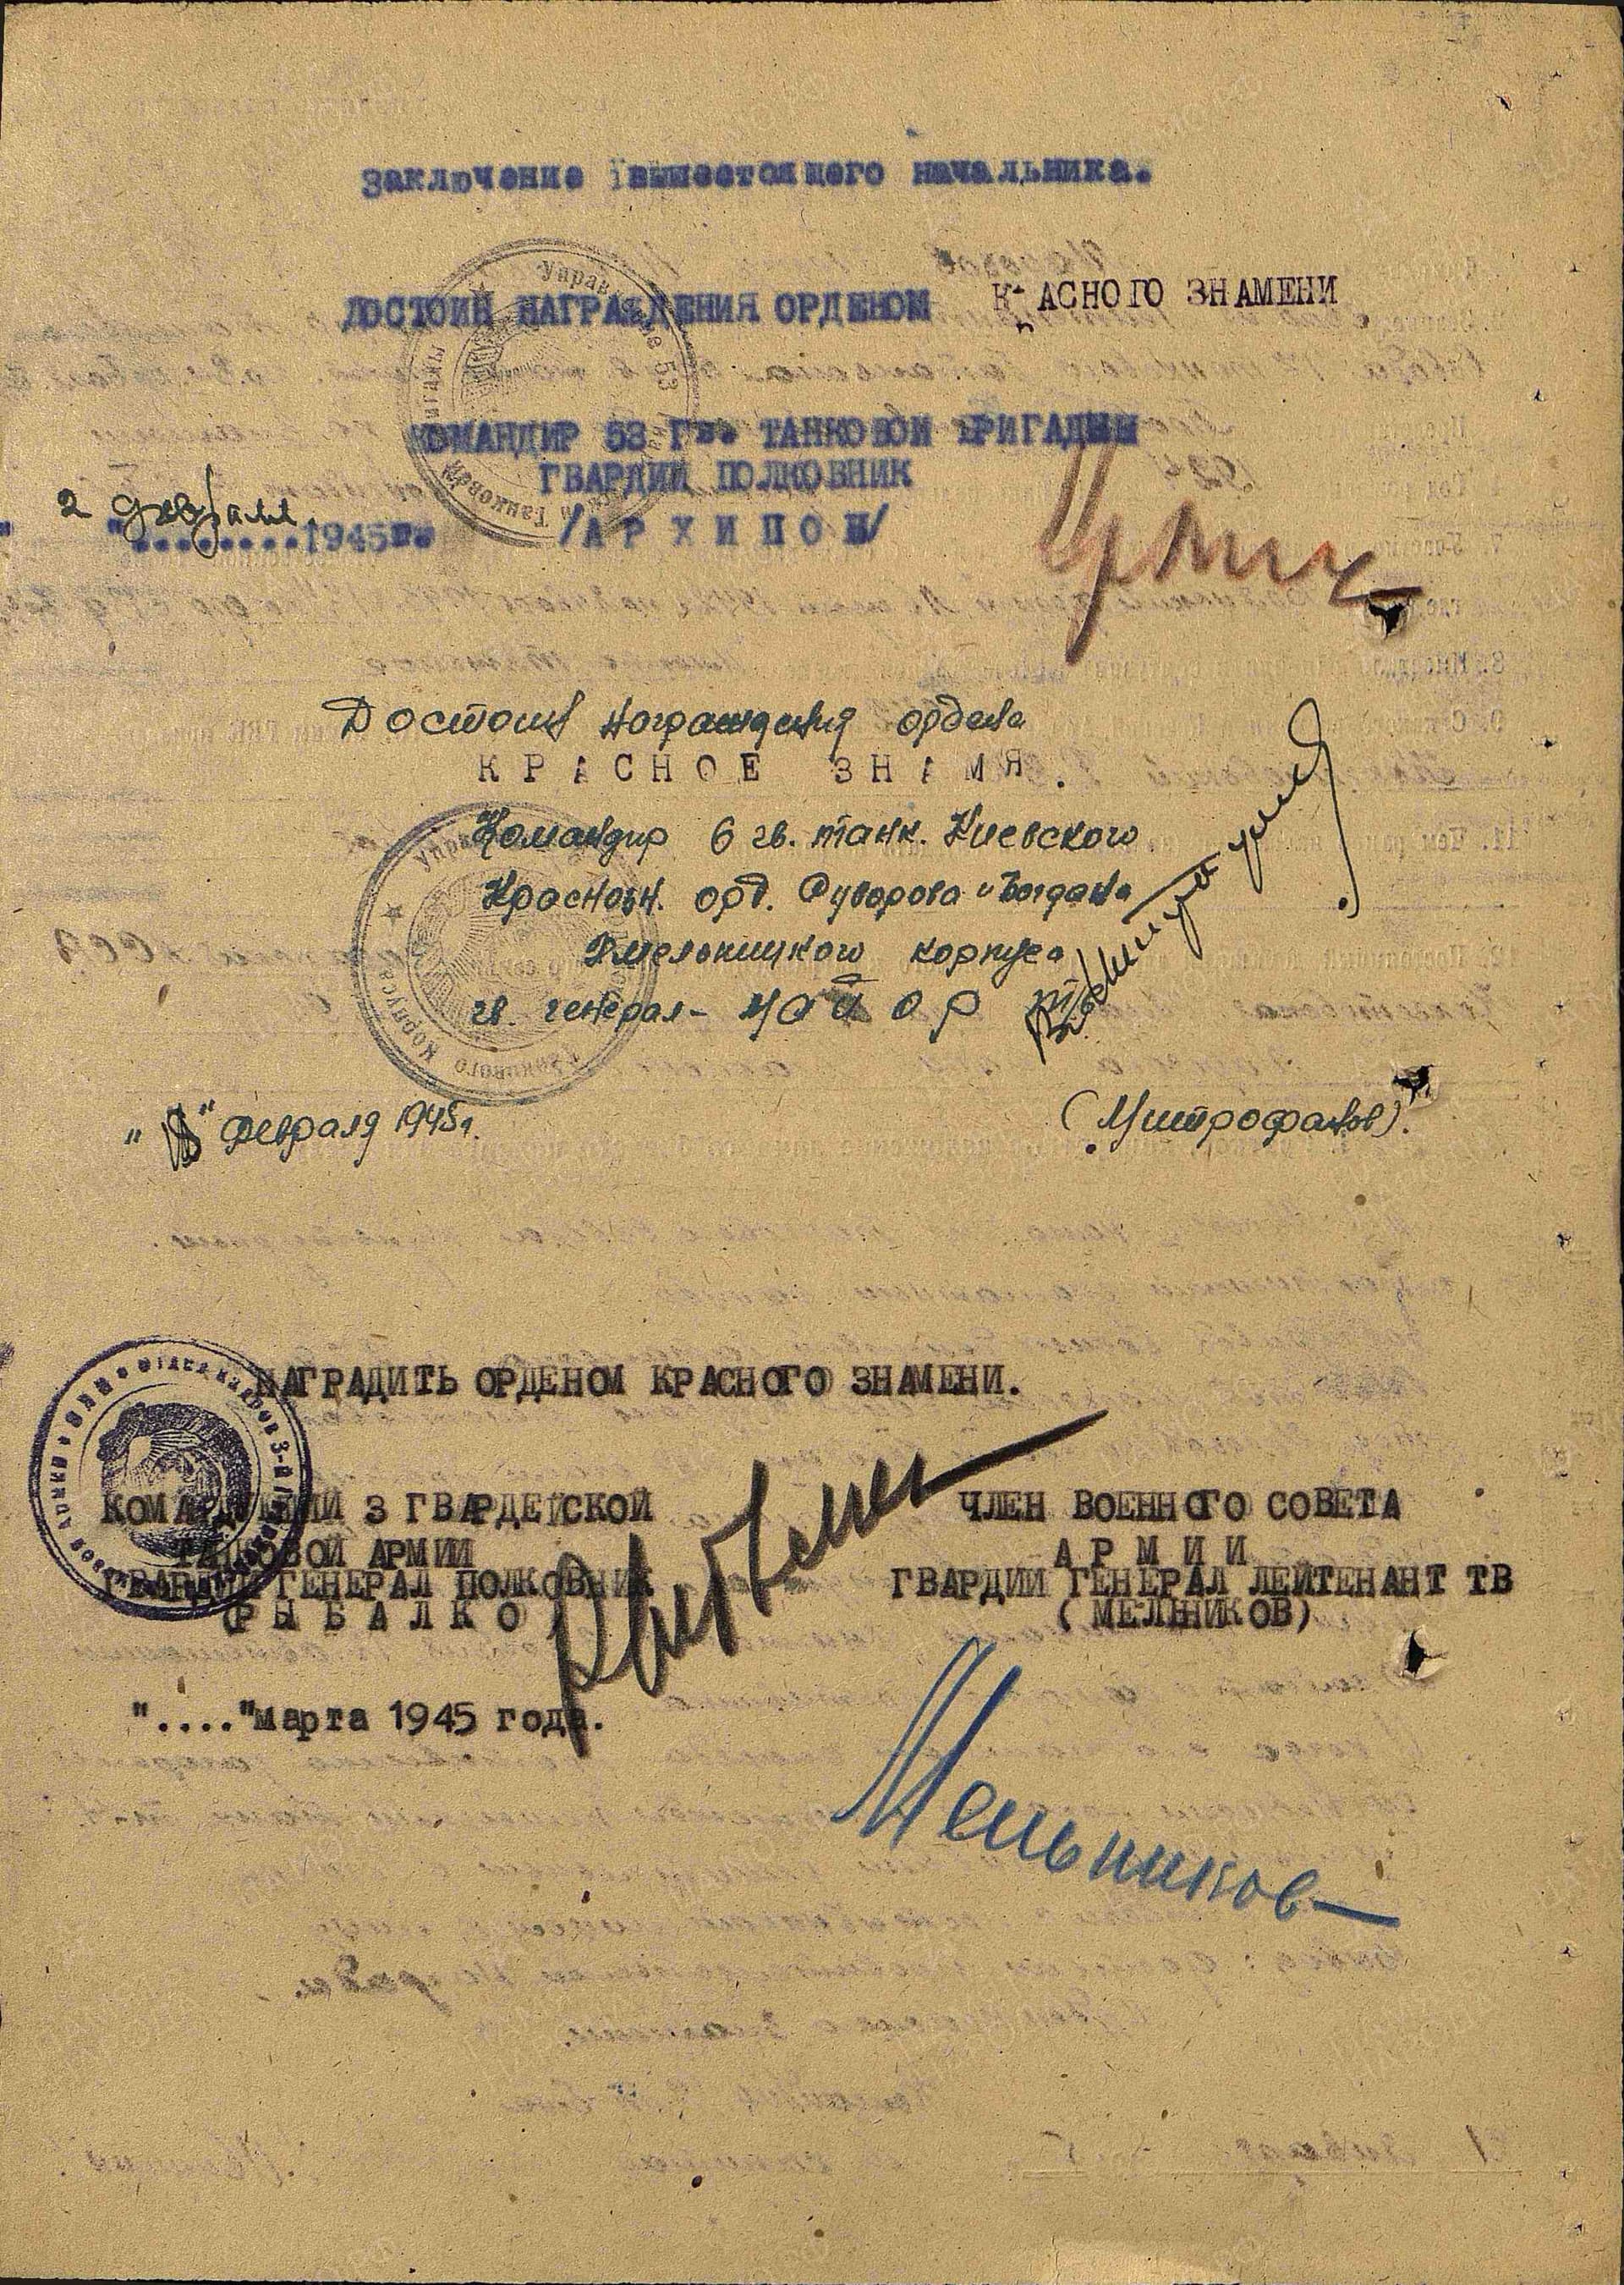 Заключение вышестоящего начальника.
ДОСТОИН НАГРАЖДЕНИЯ ОРДЕНОМ КРАСНОГО ЗНАМЕНИ
КОМАНДИР 53 Гв. ТАНКОВОЙ БРИГАДЫ
ГВАРДИИ ПОЛКОВНИК
/АРХИПОВ/
2 февраля 1945г.
Достоин награждения ордена
КРАСНОЕ ЗНАМЯ.
Командир 6 гв. танк. Киевского
Краснозн. орд. Суворова и Богдана
Хмельницкого корпуса
гв. генерал-майор
" " февраля 1945г.
(Митрофанов).
НАГРАДИТЬ ОРДЕНОМ КРАСНОГО ЗНАМЕНИ.
КОМАНДУЮЩИЙ 3 ГВАРДЕЙСКОЙ
ТАНКОВОЙ АРМИИ
ГВАРДИИ ГЕНЕРАЛ ПОЛКОВНИК
(РЫБАЛКО)
ЧЛЕН ВОЕННОГО СОВЕТА
АРМИИ
ГВАРДИИ ГЕНЕРАЛ ЛЕЙТЕНАНТ ТВ
(МЕЛЬНИКОВ)
"...."марта 1945 года.
Мельников